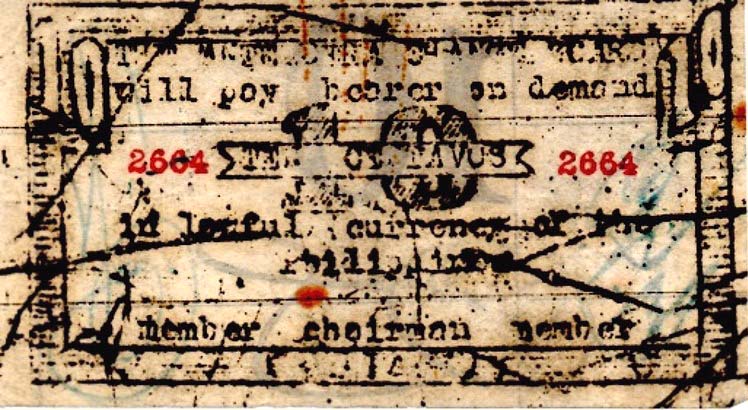 will pay bearer on demand
2664 TEN CENTAVOS 2664
in lawful currency of the
Philippines
member chairman member